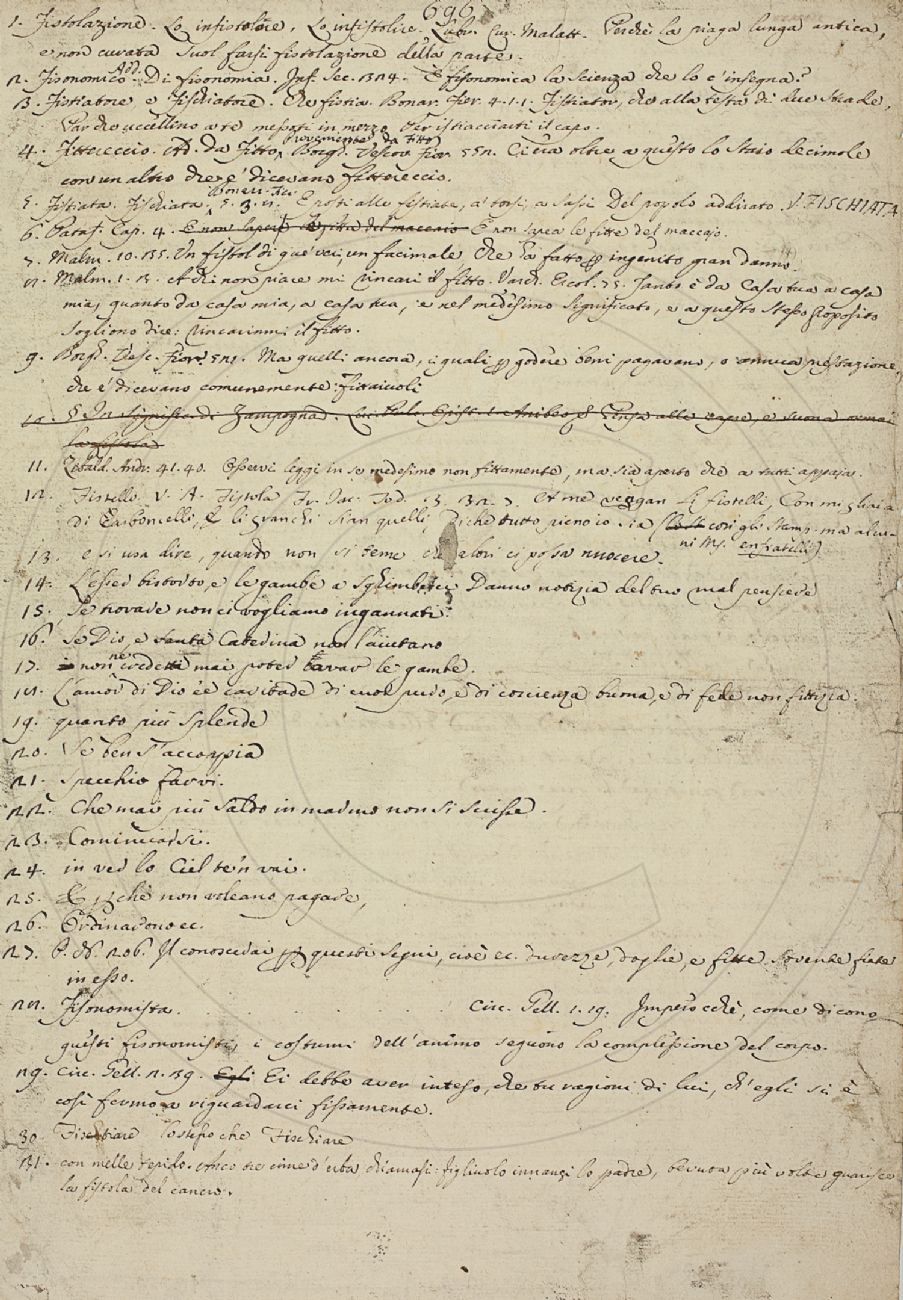 696
1. Fistolazione. Lo infistolire, Lo infistolire. Libr. Cur. Malatt. Perchè la piaga lunga antica,
e non curata suol farsi fistolazione della parte.
2. Fisonomico Add. Di fisonomia. Inf. Sec. 324. E fisonomica la scienza che lo c'insegna?
3. Fistiatore e Fischiatore. Che fistia. Bonar. Fier. 4. 1. 1. Fistiator, che alla testa di due strade,
Par che uccellino a te messosi in mezzo Per istiacciarti il capo.
4. Fittereccio. Ad. da Fitto, Provemente da Fitto Borgh. Vescov. Fior. 552. Ci era oltre a questo lo staio decimole
con un altro che e' dicevano fittereccio.
5. Fistiata. Fischiata. Bonarr. Fier. 5. 3. 8. Esposti alle fistiate, a' torsi, a' sassi Del popolo addirato. V. FISCHIATA
6. Pataf. Cap. 4. E non saperi le fitte del maccaio E non sapea le fitte del maccajo.
7. Malm. 10. 135. Un fistol di que' veri, un facimale Che ha fatto ingenito gran danno.
8. Malm. 1. 8. A chi non piace mi rincari il fitto. Varch. Ercol. 75. Tanto è da casa tua a casa
mia, quanto da casa mia, a casa tua, e nel medesimo significato, e a questo stesso proposito
sogliono dire: rincarimmi il fitto.
9. Borgh. Vesc. Fior. 521. Ma quelli ancora, i quali p godere beni pagavano, o annua prestazione,
che e' dicevano comunemente: fittaiuoli
10. §. In signific. di Zampogna. Pensa alle capre, e suona omai
la fistola
11. Zibald. Andr. 41. 40. Osservi leggi in se medesimo non fittamente, ma sia aperto che a tutti appaja.
12. Fistello. V. A. Fistola Fr. Jac. Tod. 3. 32. 7 A me vengan li fistelli, Con migliaia
di Carboncelli, E li granchi sian quelli, Di che tutto pieno io sia (così gli stamp. ma alcu-
ni Mss. enfratelli)
13. e si usa dire, quando non si teme che altri ci possa nuocere.
14. L'esser bistorto, e le gambe a sghimbesci Danno notizia del tuo mal pensiero
15. Se trovare non ci vogliamo ingannati.
16. Se Dio, e santa Caterina non l'aiutano
17. non ne credetti mai poter cavar le gambe.
18. L'amor di Dio è caritade di cuor puro, e di coscienza buona, e di fede non fittizia.
19. quanto più splende
20. Se ben s'accoppia
21. specchio farvi.
22. Che mai più saldo in marmo non si scrisse.
23. Cominciarsi.
24. in ver lo Ciel te'n vai.
25. E perchè non voleano pagare,
26. Ordinarono ec.
27. P. N. 206. Il conoscerai p questi segni, cioè ec. durezze, doglie, e fitte sovente fiate
in esso.
28. Fisonomista. . . . . . . . . Circ. Gell. 1. 19. Imperocchè, come dicono
questi fisonomisti, i costumi dell'animo seguono la complessione del corpo.
29. Circ. Gell. 2. 39. Egli Ei debbe aver inteso, che tu ragioni di lui, ch'egli si è
così fermo a riguardarci fissamente.
30. Fischiare lo stesso che Fischiare
31. con melle tepido. Anco tre cime d'erba chiamasi: figliuolo innanzi lo padre, bevuta più volte guarisce
la fistola del cancro.